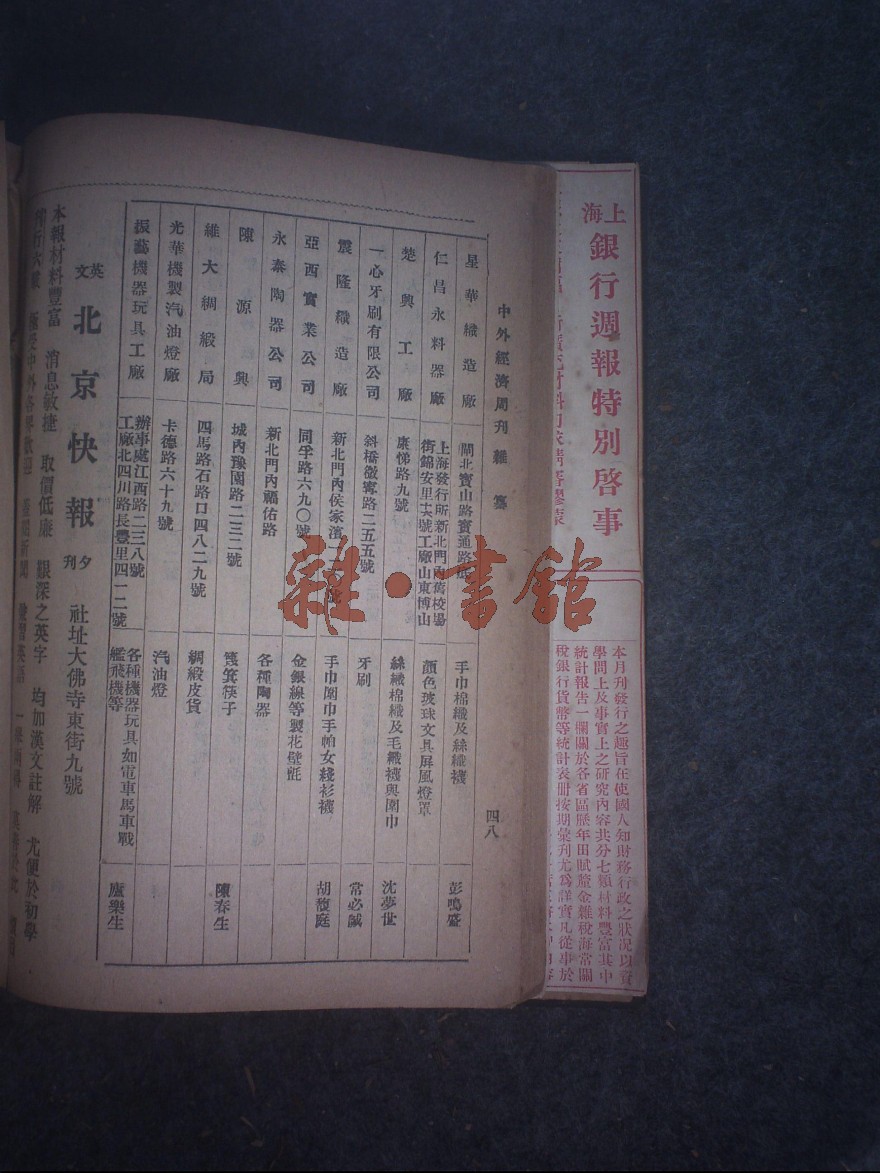 上海
銀行週報特別啓事
本月刊發行之趣旨在使國人知財務行政之狀況以資
學問上及事實上之研究內容共分七類材料豐富其中
統計報告一欄關於各省區歷年田賦釐金雜稅海常關
稅銀行貨幣等統計表册按期彙刊尤爲詳實凡從事於
中外經濟周刊 雜纂
四八
星華織造廠 閘北寶山路寶通路 手巾棉織及絲織襪 彭鳴盛
仁昌永料器廠 上海發行所新北門內舊校場 街錦安里 號工廠山東博山 顏色玻球文具屏風燈罩
楚興工廠 康悌路九號 絲織棉織及毛織襪與圍巾 沈夢世
一心牙刷有限公司 斜橋徽寧路二五五號 牙刷 常必誠
震隆織造廠 新北門內侯家濱 號 手巾圍巾手帕女綫衫襪 胡馥庭
亞西實業公司 同孚路六九〇號 金銀線等製花壁毡
永泰陶器公司 新北門內福佑路 各種陶器
陳源興 城內豫園路二三二號 筷子 陳春生
維大綢緞局 四馬路石路口四八二九號 綢緞皮貨
光華機製汽油燈廠 卡德路六十九號 汽油燈
振藝機器玩具工廠 辦事處江西路二三八號 工廠北四川路長豐里四一二號 各種機器玩具如電車馬車戰 艦飛機等 盧樂生
英文 北京快報 夕刊 社址大佛寺東街九號
本報材料豐富 消息敏捷 取價低廉 艱深之英字 均加漢文註解 尤便於初學
雜·書館